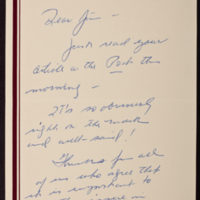 Dear Jim -
Just read your
article in the Post this
morning -
It's so obviously
right on the mark
and well said!
Thanks from all
of us who agree that
it is important to
in